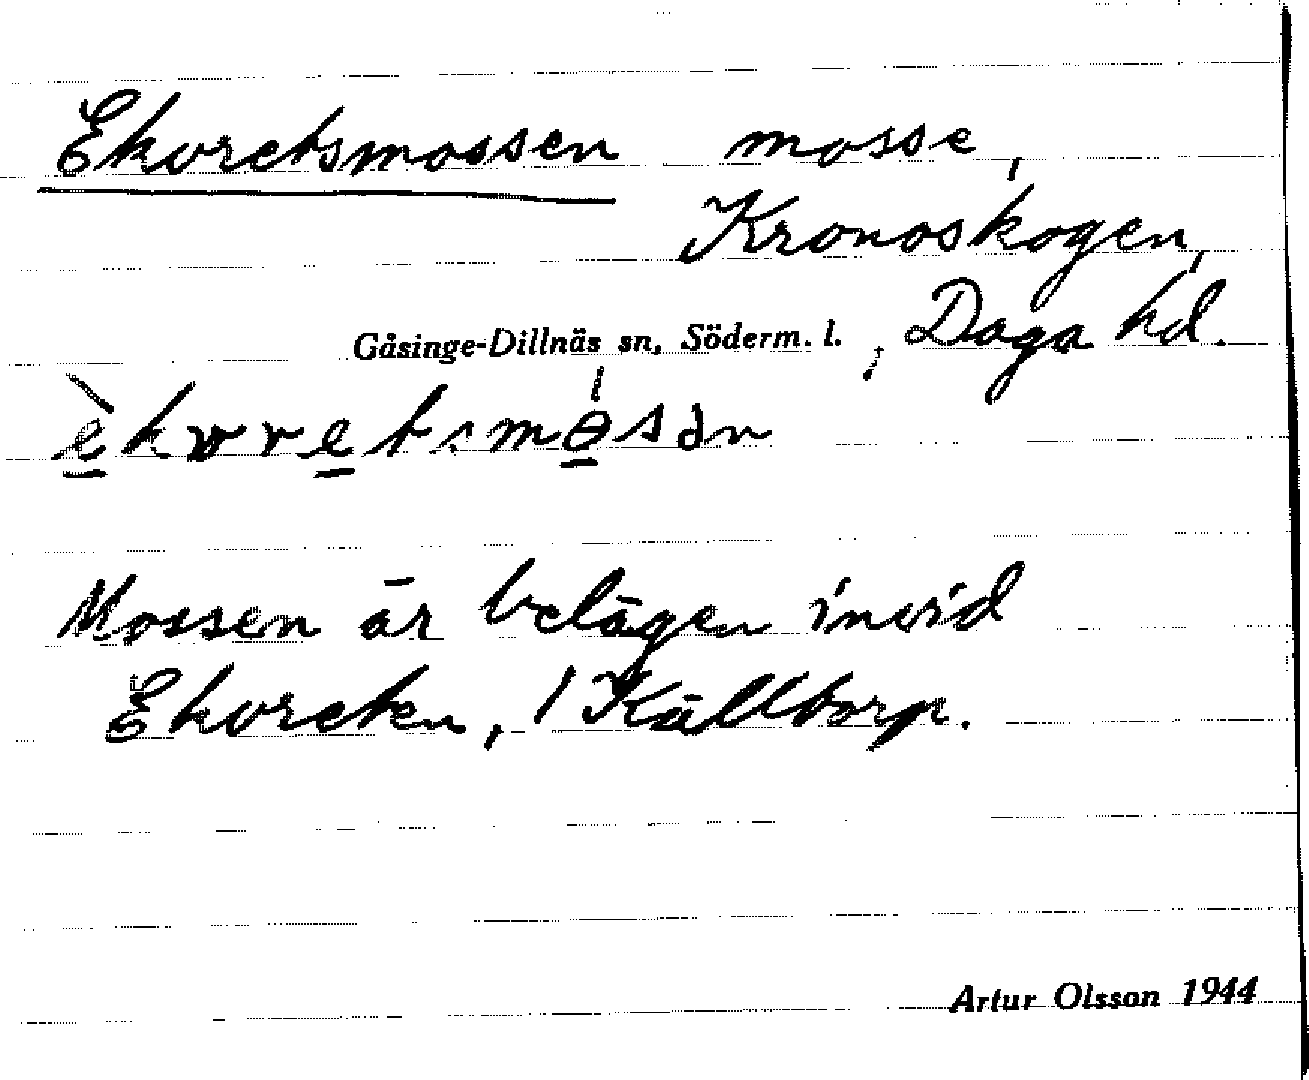 Ekoretsmossen mosse,
Kronoskogen,
Gåsinge-Dillnäs sn, Söderm. l. , Daga hd.
Mossen är belägen invid
Ekoreten, 1 Källtorp.
Artur Olsson 1944